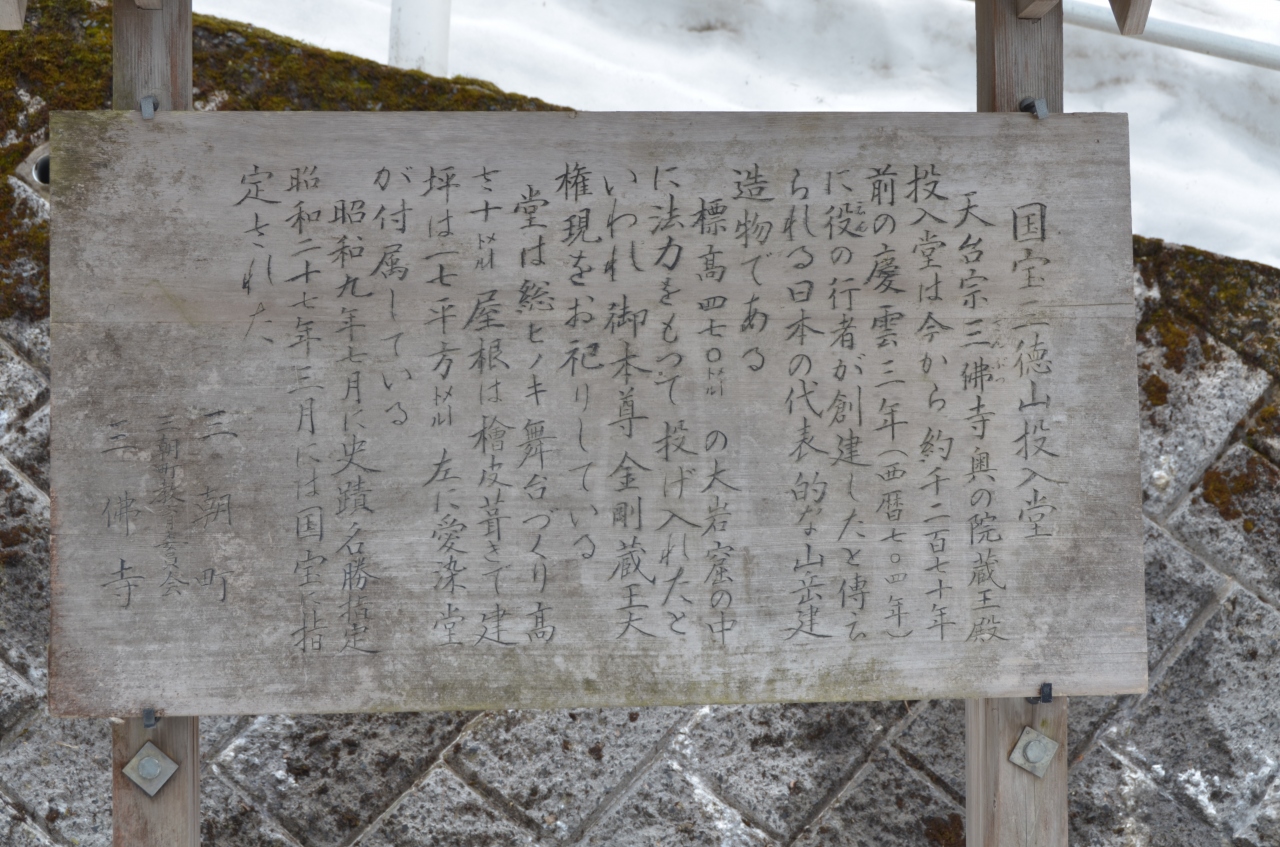 国宝三徳山投入堂
天台宗三佛寺奥の院蔵王殿
さんぶつ
投入堂は今から約千二百七十年
前の慶雲三年(西暦七〇四年)
に役の行者が創建したと傳え
えん
られる日本の代表的な山岳建
造物である
標高四七〇㍍の大岩窟の中
に法力をもつて投げ入れたと
いわれ御本尊金剛蔵王大
権現をお祀りしている
堂は総ヒノキ舞台づくり高
さ十㍍屋根は檜皮葺きで建
坪は二七平方㍍左に愛染堂
が付属している
昭和九年七月に史蹟名勝指定
昭和二十七年三月には国宝に指
定された
三朝町
三朝町教育委員会
三佛寺